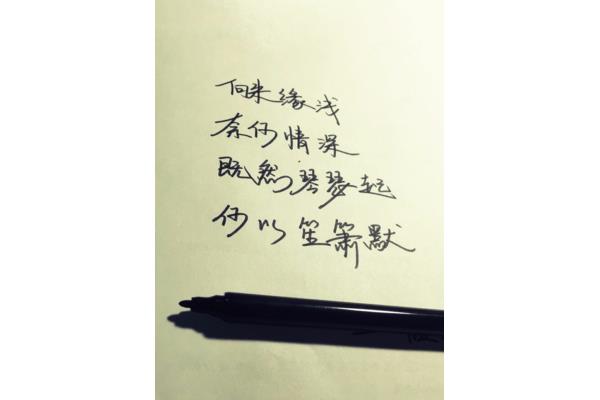 向来缘浅
奈何情深
既然琴琴起
何以笙箫默